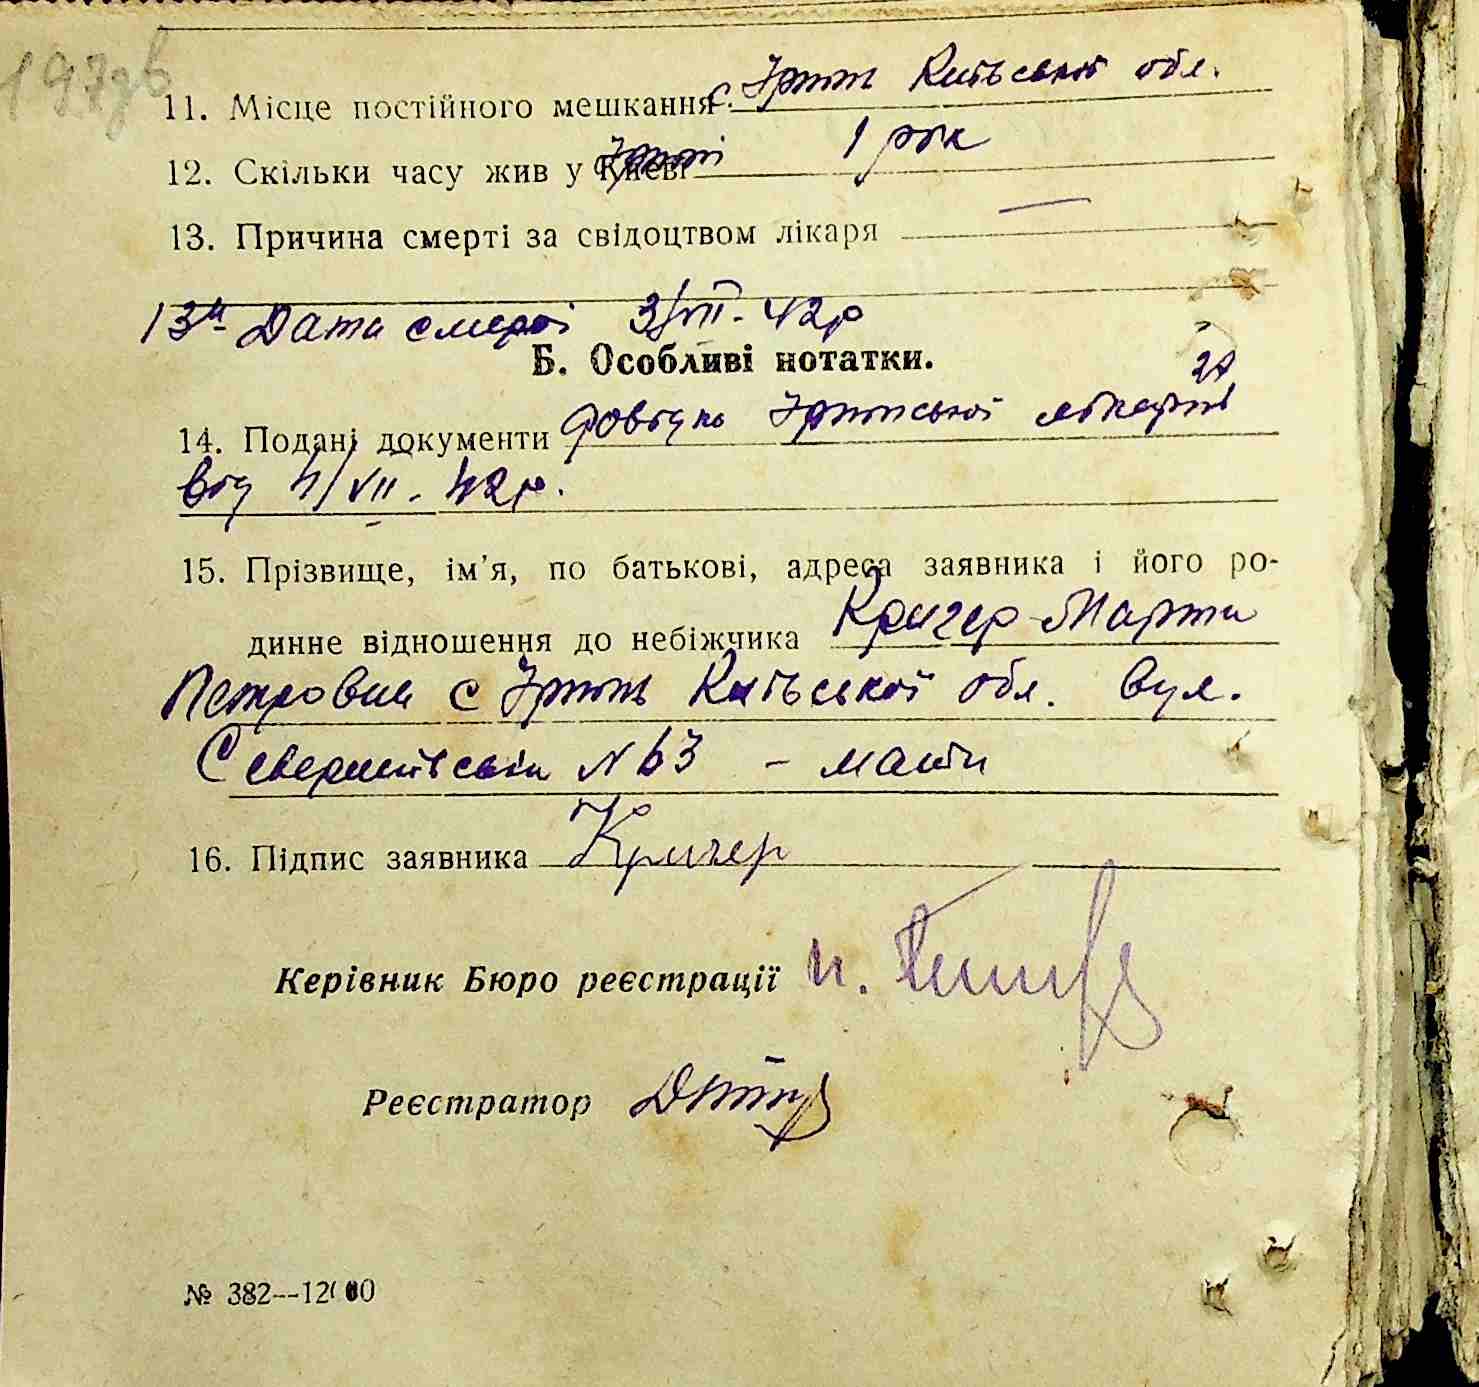 197зв
11. Місце постійного мешкання с. Ірпінь Київської обл.
12. Скільки часу жив у Ірпіні 1 рік
13. Причина смерті за свідоцтвом лікаря —
13а Дата смерті 3/VII. 42р
Б. Особливі нотатки.
14. Подані документи Довідка Ірпінської лікарні
від 4/VII. 42р.
15. Прізвище, ім'я, по батькові, адреса заявника і його ро-
динне відношення до небіжчика Кригер Марта
Петровна с Ірпінь Київської обл. вул.
№ 63 - мати
16. Підпис заявника Кригер
Керівник Бюро реєстрації
Реєстратор
№ 382--12000